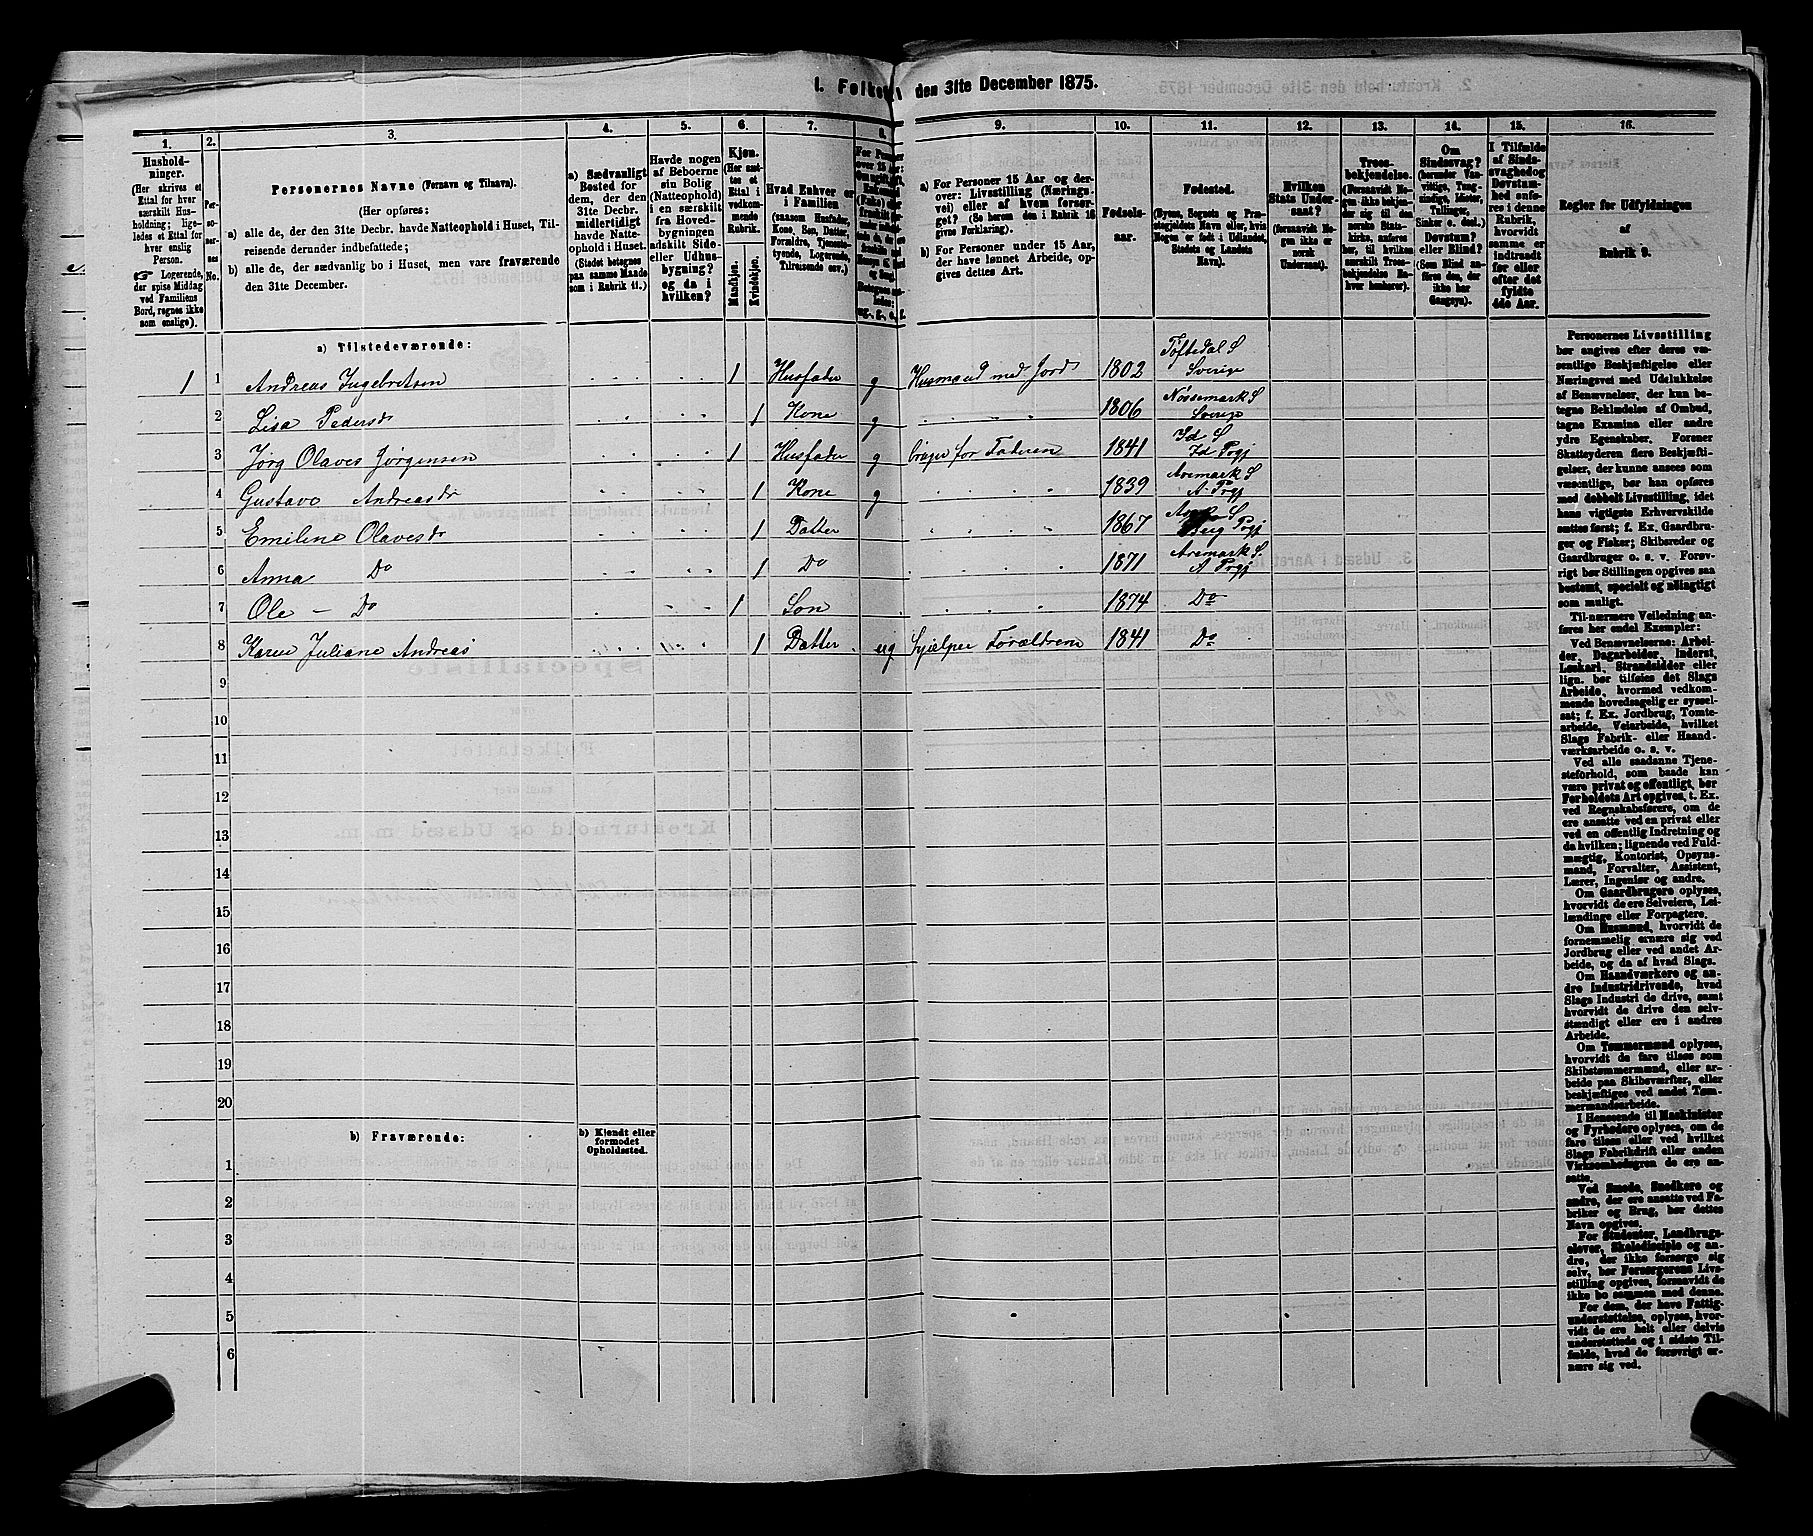 I. Folket
den 31te December 1875.
1.
2.
3.
4.
5.
6.
7.
8.
9.
10.
11.
12.
13.
14.
15.
16.
Hushold-
ninger.
(Her skrives et
Ettal for hver
særskilt Hus-
holdning; lige-
ledes et Ettal for
hver enslig
Person.
☛ Logerende,
der spise Middag
ved Familiens
Bord, regnes ikke
som enslige).
Per-
so-
ner-
nes
No.
Personernes Navne (Fornavn og Tilnavn).
(Her opføres:
a) alle de, der den 31te Decbr. havde Natteophold i Huset, Til-
reisende derunder indbefattede;
b) alle de, der sædvanlig bo i Huset, men vare fraværende
den 31te December.
a) Sædvanligt
Bosted for
dem, der den
31te Decbr.
midlertidigt
havde Natte-
ophold i Huset.
(Stedet betegnes
paa samme Maade
som i Rubrik 11.)
Havde nogen
af Beboerne
sin Bolig
(Natteophold)
i en særskilt
fra Hoved-
bygningen
adskilt Side-
eller Udhus-
bygning?
og da i
hvilken?
Kjøn.
(Her sæt-
tes et
Ettal i
vedkom-
mende
Rubrik.
Mandkjøn.
Kvindekjøn.
Hvad Enhver er
i Familien
(saasom Husfader,
Kone, Søn, Datter,
Forældre, Tjeneste-
tyende, Logerende,
Tilreisende osv.)
a) For Personer 15 Aar og der-
over: Livsstilling (Nærings-
vei) eller af hvem forsør-
get? (Se herom den i Rubrik 16
givne Forklaring).
b) For Personer under 15 Aar,
der have lønnet Arbeide, op-
gives dettes Art.
Fødsels-
aar.
Fødested.
(Byens, Sognets og Præ-
stegjeldets Navn eller, hvis
Nogen er født i Udlandet,
Stedets og Landets
Navn).
Hvilken
Stats Under-
saat?
(forsaavidt No-
gen ikke er
norsk
Undersaat).
Troes-
bekjendelse.
(Forsaavidt No-
gen ikke bekjen-
der sig til den
norske Stats-
kirke, anføres
her, til hvilken
Troesbekjendelse Ba-
hver henhører).
Om
Sindssvag?
(herunder Van-
vittige, Tung-
sindige, Idioter,
Tullinger,
Sinker o. desl.)
Døvstum?
eller Blind?
(Som Blind an-
føres den, der
ikke har
Gangsyn).
I Tilfælde
af Sinds-
svaghed og
Døvstum-
hed anfø-
res i denne
Rubrik,
hvorvidt
samme er
indtraadt
før eller
efter det
fyldte
4de Aar.
Regler for Udfyldningen
af
Rubrik 9.
a) Tilstedeværende:
1 1 Andreas Ingebretsen 1 Husfader g Husmand med Jord 1802 Töftedal S Sverige
2 Lisa Pedersdr 1 Kone g 1806 Nössemark S Sverige
3 Jörg Olaves Jörgensen 1 Husfader g bruger for Faderen 1841 Id S Id Prgj
4 Gustava Andreasdr 1 Kone g 1839 Aremark S A. Prgj
5 Emiline Olavesdr 1 Datter 1867 S Berg Prgj
6 Anna Do 1 Do 1871 Aremark S. A Prgj
7 Ole - Do 1 Sön 1874 Do
8 Karen Juliane Andreas 1 Datter ug hjelper Forældrene 1841 Do
9
10
11
12
13
14
15
16
17
18
19
20
b) Fraværende:
b) Kjendt eller
formodet
Opholdssted.
1
2
3
4
5
6
Personernes Livsstilling
bør angives efter deres væ-
sentlige Beskjæftigelse eller
Næringsvei med Udelukkelse
af Benævnelser, der kun be-
tegne Beklædelse af Ombud,
tagne Examina eller andre
ydre Egenskaber. Forener
Skatteyderen flere Beskjæfti-
gelser, der kunne ansees som
væsentlige, bør han opføres
med dobbelt Livsstilling, idet
hans vigtigste Erhvervskilde
sættes først; f. Ex. Gaardbru-
ger og Fisker; Skibsreder og
Gaardbruger o. s. v. Forøv-
rigt bør Stillingen opgives saa
bestemt, specielt og nøiagtigt
som muligt.
Til nærmere Veiledning an-
føres her endel Exempler:
Ved Benævnelserne: Arbei-
der, Dagarbeider, Inderst,
Løskarl, Strandsidder eller
lign. bør tilføies det Slags
Arbeide, hvormed vedkom-
mende hovedsagelig er syssel-
sat; f. Ex. Jordbrug, Tomte-
arbeide, Veiarbeide, hvilket
Slags Fabrik- eller Haand-
værksarbeide o. s. v.
Ved alle saadanne Tjene-
steforhold, som baade kan
være privat og offentligt, bør
Forholdets Art opgives, t. Ex.
ved Regnskabsførere, om de
ere ansatte ved en privat eller
ved en offentlig Indretning og
da hvilken; lignende ved Fuld-
mægtig, Kontorist, Opsyns-
mand, Forvalter, Assistent,
Lærer, Ingeniør og andre.
Om Gaardbrugere oplyses,
hvorvidt de ere Selveiere, Lei-
lændinge eller Forpagtere.
Om Husmænd, hvorvidt de
fornemmelig ernære sig ved
Jordbrug eller ved andet Ar-
beide, og da af hvad Slags.
Om Haandværkere og an-
dre Industridrivende, hvad
Slags Industri de drive, samt
hvorvidt de drive den selv-
stændigt eller ere i andres
Arbeide.
Om Tømmermænd oplyses,
hvorvidt de fare tilsøs som
Skibstømmermænd, eller ar-
beide paa Skibsværfter, eller
beskjæftiges ved andet Tøm-
mermandsarbeide.
I Henseende til Maskinister
og Fyrbødere oplyses, om de
fare tilsøs eller ved hvilket
Slags Fabrikdrift eller anden
Virksomhedsgren de ere an-
satte.
Ved Smede, Snedkere og
andre, der ere ansatte ved Fa-
briker og Brug, bør dettes
Navn opgives.
For Studenter, Landbrugs-
elever, Skoledisciple og an-
dre, der ikke forsørge sig
selv, bør Forsørgerens Livs-
stilling opgives, forsaavidt de
ikke bo sammen med denne.
For dem, der have Fattig-
understøttelse, oplyses, hvor-
vidt de ere helt eller delvis
understøttede og i sidste Til-
fælde, hvad de forøvrigt er-
nære sig ved.